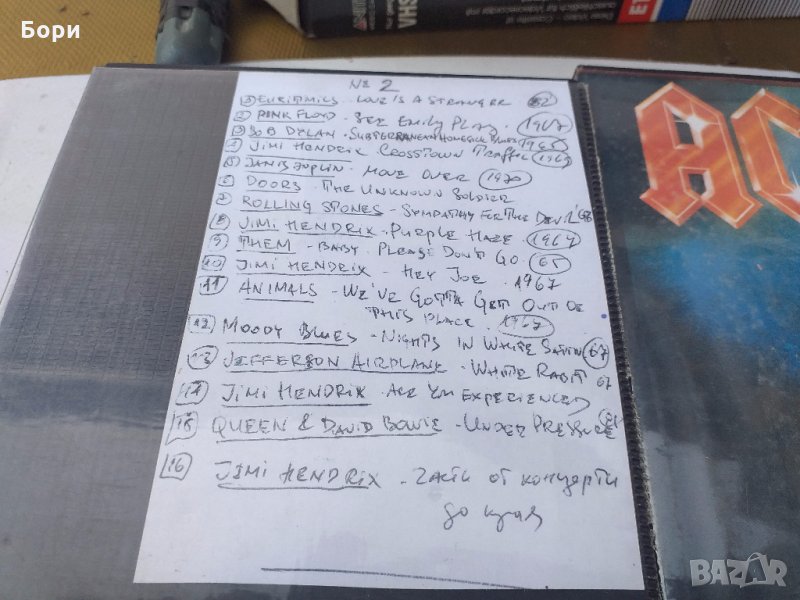 Бори
VHS
ET
№ 2
1) EURITMICS - LOVE IS A STRANGER 82
2) PINK FLOYD - SEE EMILY PLAY. 1967
3) BOB DYLAN - SUBTERRANEAN HOMESICK BLUES 1965
4) JIMI HENDRIX CROSSTOWN TRAFFIC 1967
5) JANIS JOPLIN - MOVE OVER 1970
6) DOORS - THE UNKNOWN SOLDIER
7) ROLLING STONES - SYMPATHY FOR THE DEVIL 68
8) JIMI HENDRIX - PURPLE HAZE 1967
9) THEM - BABY PLEASE DON'T GO 65
10) JIMI HENDRIX - HEY JOE 1967
11) ANIMALS - WE'VE GOTTA GET OUT OF
THIS PLACE. 1967
12) MOODY BLUES - NIGHTS IN WHITE SATIN 67
13) JEFFERSON AIRPLANE - WHITE RABIT 67
14) JIMI HENDRIX - ARE YOU EXPERIENCED
15) QUEEN & DAVID BOWIE - UNDER PRESSURE 81
16) JIMI HENDRIX - части от концерти
до края
AC
BAZAR